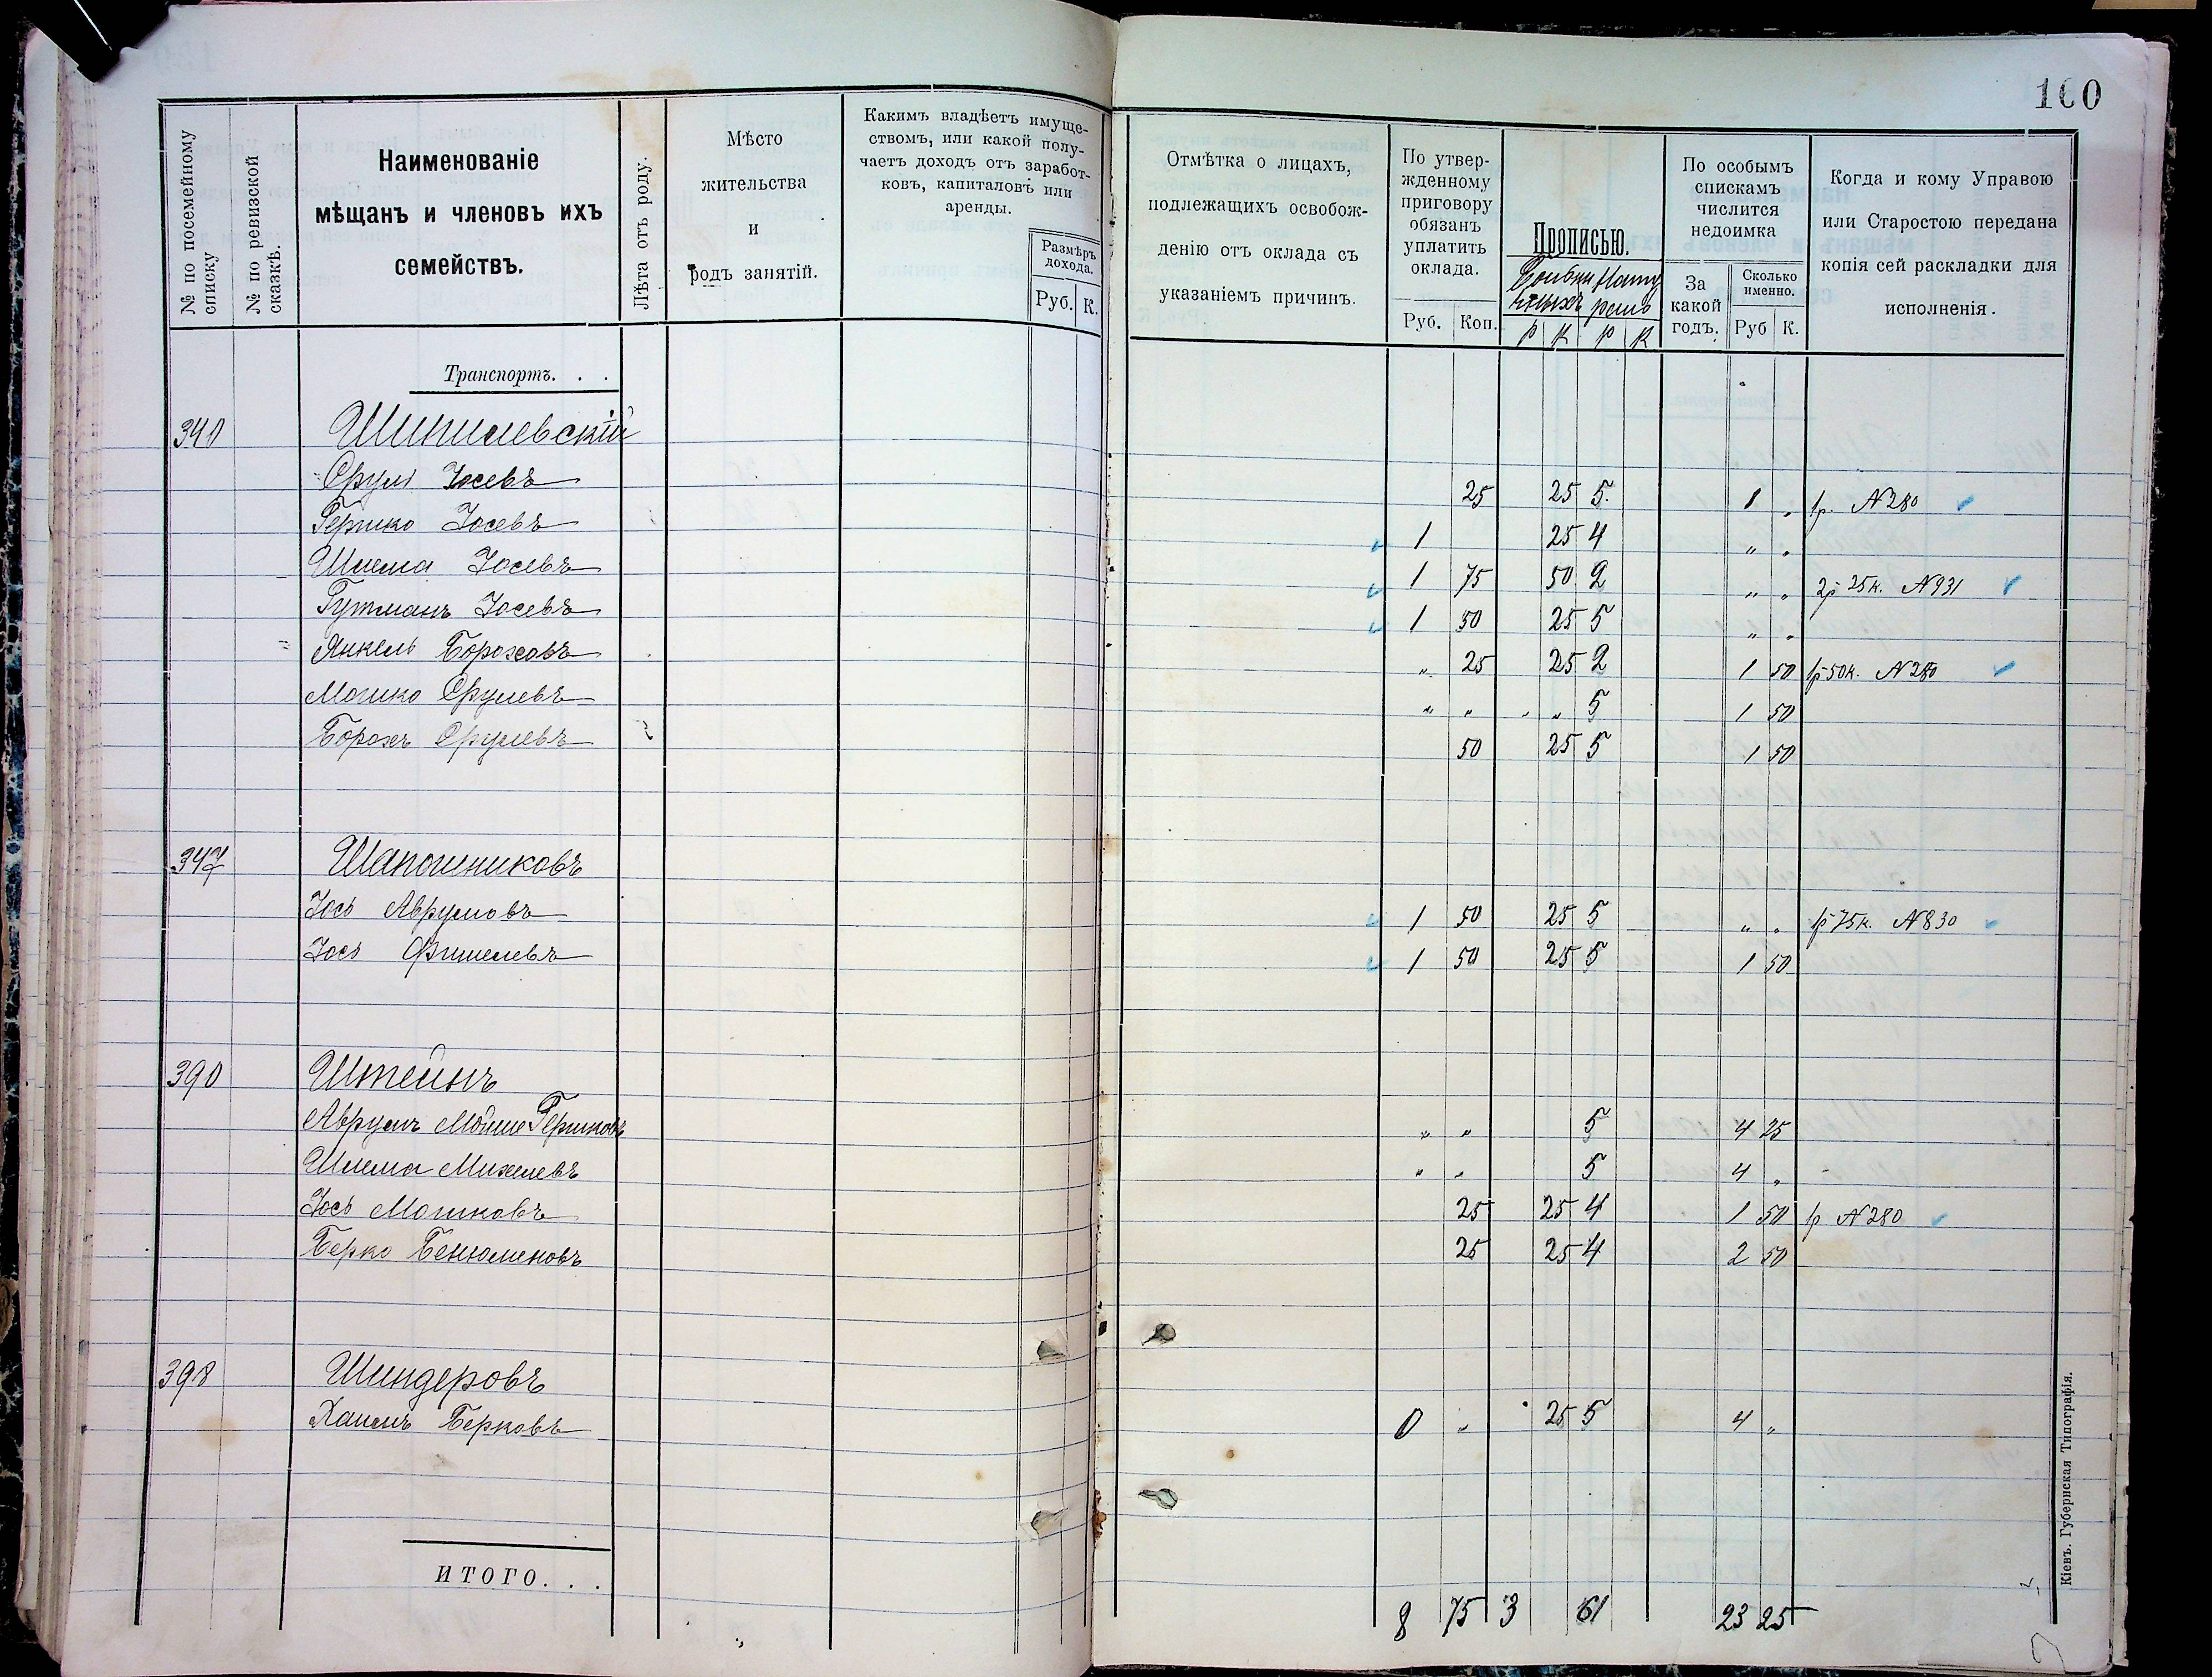 160
№ по посемейному списку
№ по ревизской сказкѣ.
Наименованіе
мѣщанъ и членовъ ихъ
семействъ.
Лѣта отъ роду.
Мѣсто
жительства
и
родъ занятій.
Какимъ владѣетъ имуще-
ствомъ, или какой полу-
чаетъ доходъ отъ заработ-
ковъ, капиталовъ или
аренды.
Размѣръ
дохода.
Руб. К.
Отмѣтка о лицахъ,
подлежащихъ освобож-
денію отъ оклада съ
указаніемъ причинъ.
По утвер-
жденному
приговору
обязанъ
уплатить
оклада.
Руб. Коп.
Прописью.
р к р к
По особымъ
спискамъ
числится
недоимка
За
какой
годъ.
Сколько
именно.
Руб К.
Когда и кому Управою
или Старостою передана
копія сей раскладки для
исполненія.
Транспортъ. . .
340 Шипилевскій
Срулі Іосевъ 25 25 5 1 „ 1р. N280
Гершко Іосевъ 1 25 4 „ „
Шлема Іосевъ 1 75 50 2 „ „ 2р 25к. N931
Гутманъ Іосевъ 1 50 25 5 „ „
Янкель Бороховъ „ 25 25 2 1 50 1р 50к. N280
Мошко Срулевъ „ „ „ „ 5 1 50
Борохъ Срулевъ 50 25 5 1 50
347 Шапошниковъ
Іось Аврумовъ 1 50 25 5 „ „ 1р 75к. N830
Іось Фишелевъ 1 50 25 5 1 50
390 Штейнъ
Аврумъ Мойше Гершковъ „ „ 5 4 25
Шлема Михелевъ „ „ 5 4 „
Іось Мошковъ 25 25 4 1 50 1р N280
Берко Бенюменовъ 25 25 4 2 50
398 Шиндеровъ
Хаимъ Берковъ 0 „ 25 5 4 „
ИТОГО. . .
8 75 3 61 23 25
Кіевъ. Губернская Типографія.